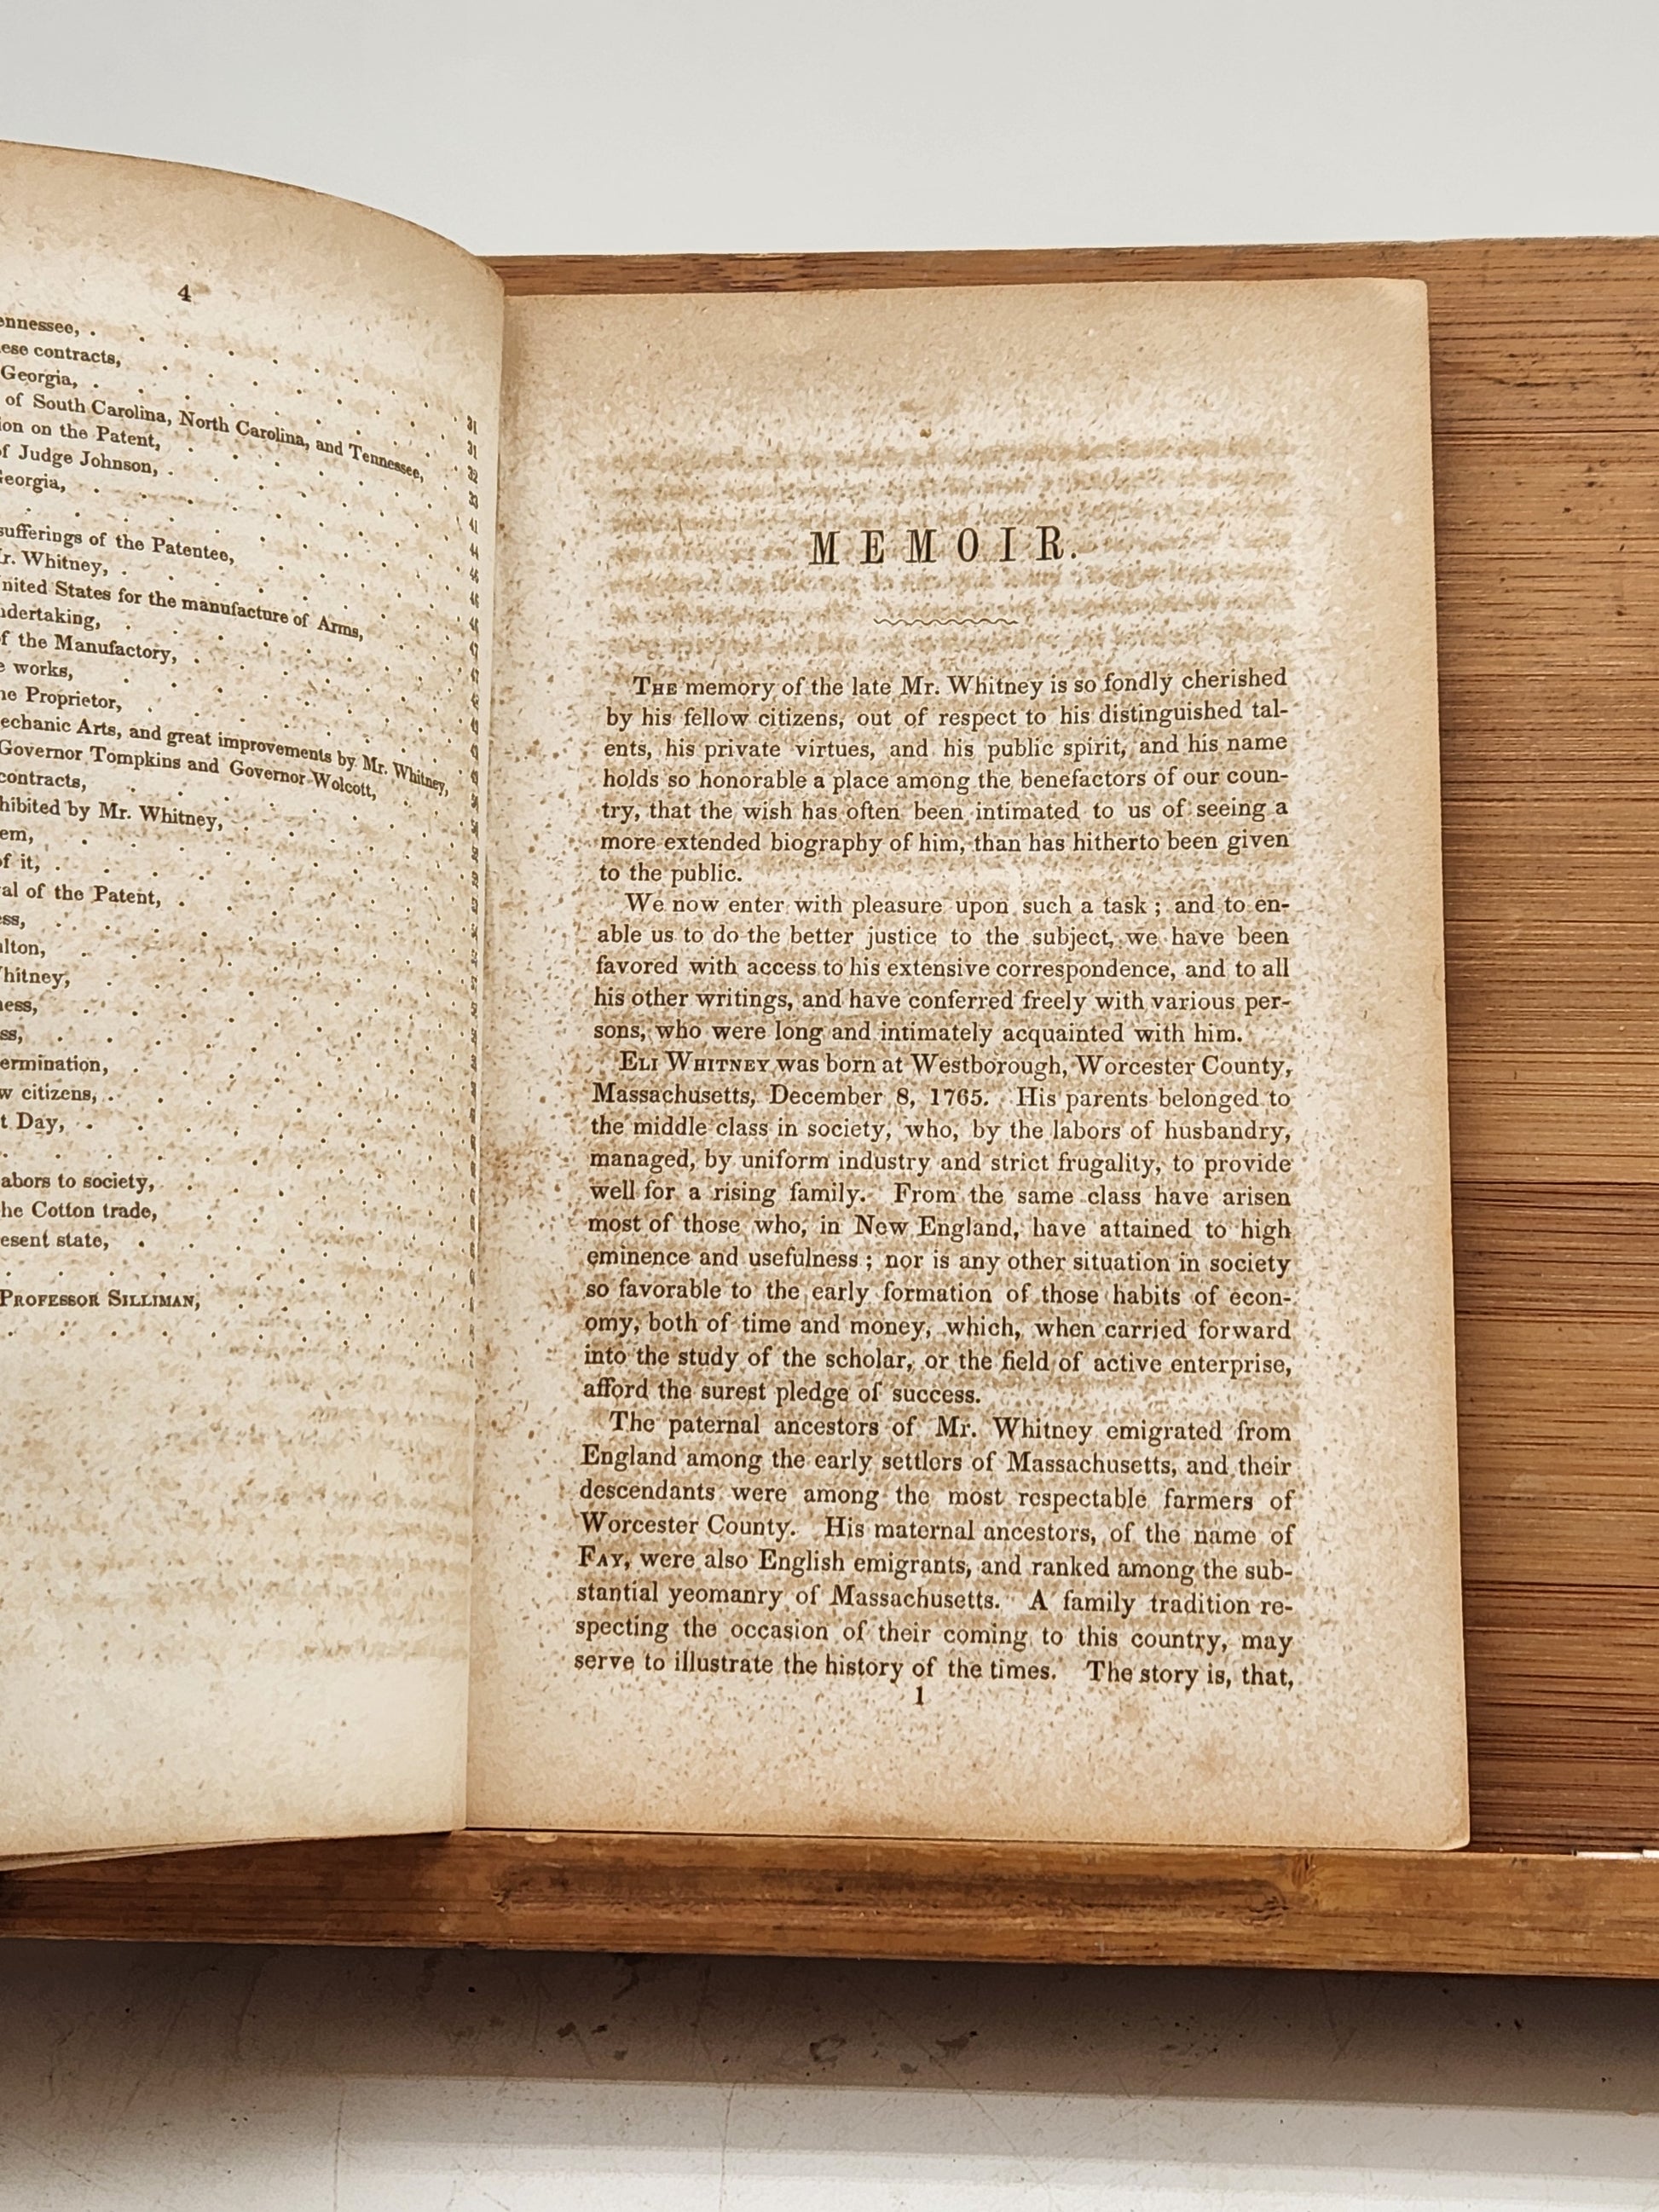 4
ennessee,
ese contracts,
Georgia,
of South Carolina, North Carolina, and Tennessee,
ion on the Patent,
of Judge Johnson,
Georgia,
sufferings of the Patentee,
r. Whitney,
nited States for the manufacture of Arms,
ndertaking,
f the Manufactory,
e works,
he Proprietor,
echanic Arts, and great improvements by Mr. Whitney,
Governor Tompkins and Governor Wolcott,
contracts,
hibited by Mr. Whitney,
em,
of it,
al of the Patent,
ess,
lton,
hitney,
ness,
ss,
ermination,
w citizens,
t Day,
abors to society,
he Cotton trade,
esent state,
PROFESSOR SILLIMAN,
MEMOIR.
THE memory of the late Mr. Whitney is so fondly cherished
by his fellow citizens, out of respect to his distinguished tal-
ents, his private virtues, and his public spirit, and his name
holds so honorable a place among the benefactors of our coun-
try, that the wish has often been intimated to us of seeing a
more extended biography of him, than has hitherto been given
to the public.
We now enter with pleasure upon such a task ; and to en-
able us to do the better justice to the subject, we have been
favored with access to his extensive correspondence, and to all
his other writings, and have conferred freely with various per-
sons, who were long and intimately acquainted with him.
ELI WHITNEY was born at Westborough, Worcester County,
Massachusetts, December 8, 1765. His parents belonged to
the middle class in society, who, by the labors of husbandry,
managed, by uniform industry and strict frugality, to provide
well for a rising family. From the same class have arisen
most of those who, in New England, have attained to high
eminence and usefulness ; nor is any other situation in society
so favorable to the early formation of those habits of econ-
omy, both of time and money, which, when carried forward
into the study of the scholar, or the field of active enterprise,
afford the surest pledge of success.
The paternal ancestors of Mr. Whitney emigrated from
England among the early settlers of Massachusetts, and their
descendants were among the most respectable farmers of
Worcester County. His maternal ancestors, of the name of
FAY, were also English emigrants, and ranked among the sub-
stantial yeomanry of Massachusetts. A family tradition re-
specting the occasion of their coming to this country, may
serve to illustrate the history of the times. The story is, that,
1